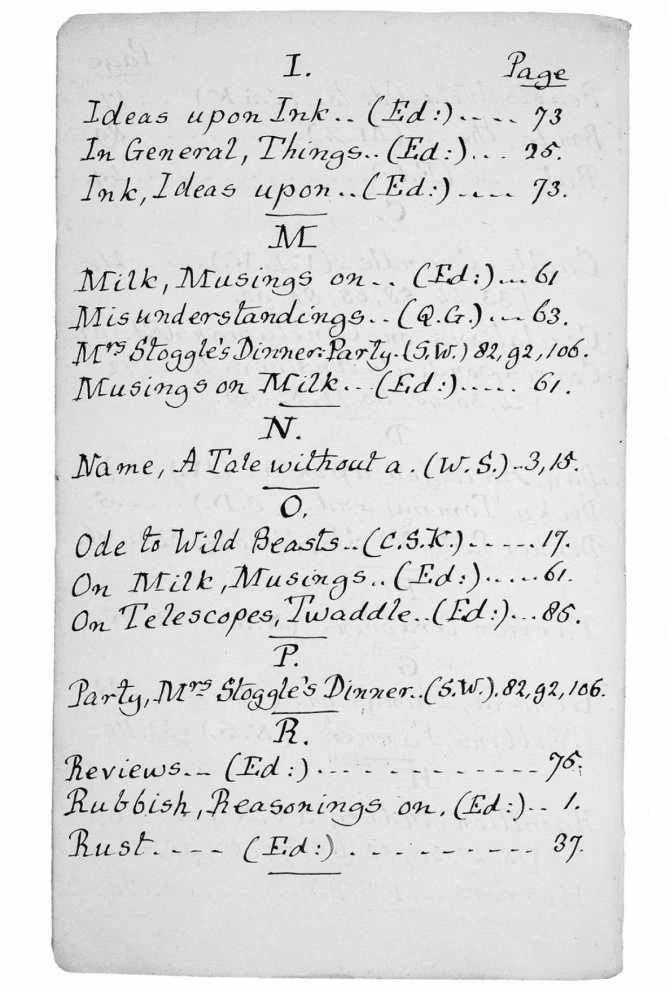 I.
Page
Ideas upon Ink.. (Ed:)..... 73
In General, Things.. (Ed:)... 25.
Ink, Ideas upon.. (Ed:).... 73.
M
Milk, Musings on.. (Ed:)... 61
Misunderstandings.. (Q.G.)... 63.
Mrs Stoggle's Dinner-Party. (S.W.) 82, 92, 106.
Musings on Milk... (Ed:)..... 61.
N.
Name, A Tale without a. (W.S.)..3, 15.
O.
Ode to Wild Beasts.. (C.S.K.)..... 17.
On Milk, Musings.. (Ed:)..... 61.
On Telescopes, Twaddle.. (Ed:)... 85.
P.
Party, Mrs Stoggle's Dinner.. (S.W.). 82, 92, 106.
R.
Reviews... (Ed:)............. 75.
Rubbish, Reasonings on. (Ed:)... 1.
Rust..... (Ed:).......... 37.